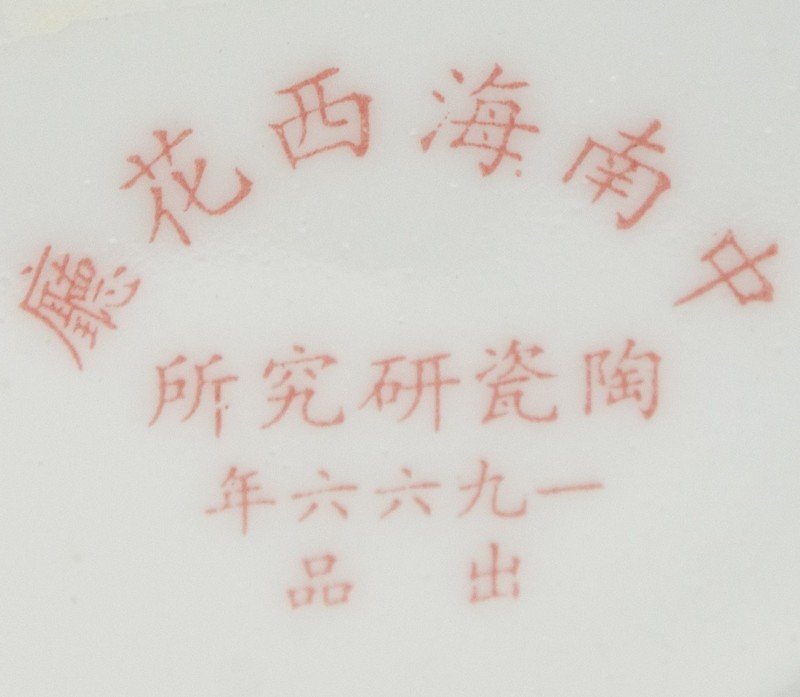 中南海西花廳
陶瓷研究所
一九六六年
出品